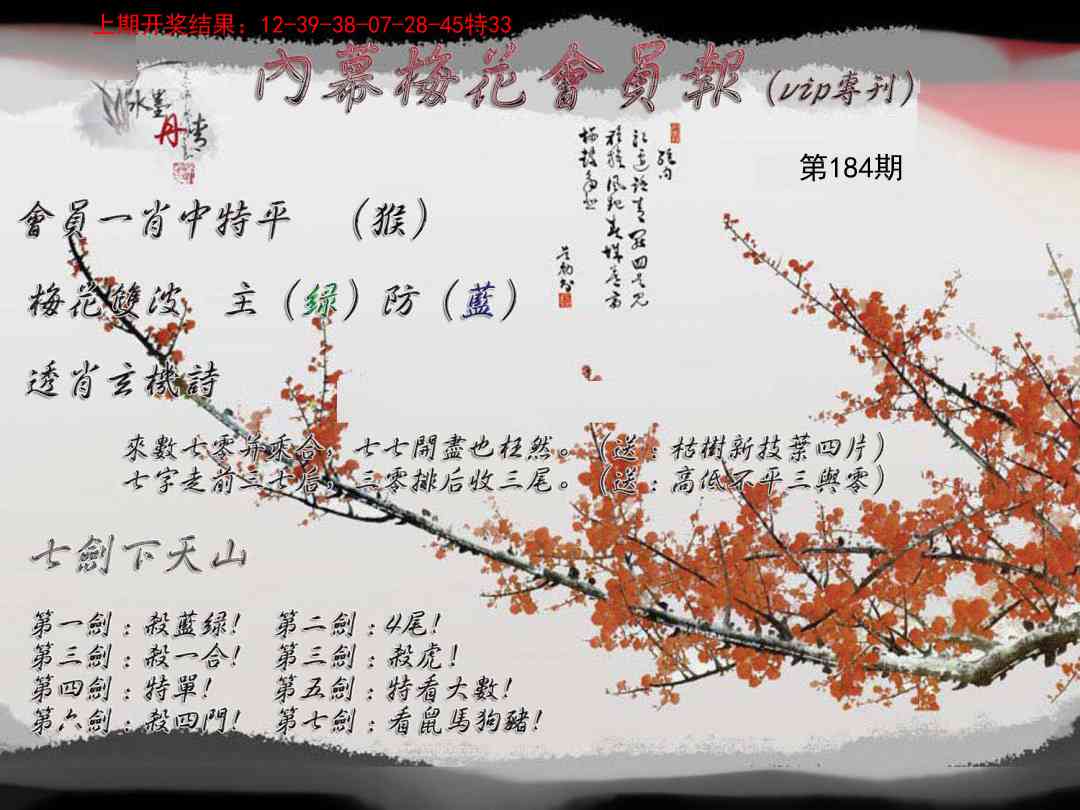 上期开奖结果：12-39-38-07-28-45特33
內幕梅花會員報（vip專刊）
水墨
丹青
第184期
會員一肖中特平　（猴）
梅花雙波　主（綠）防（藍）
透肖玄機詩
來數七零并乘合，七七開盡也枉然。（送：枯樹新技葉四片）
七字走前三七后，三零排后收三尾。（送：高低不平三與零）
七劍下天山
第一劍：殺藍綠!　第二劍：4尾!
第三劍：殺一合!　第三劍：殺虎!
第四劍：特單!　第五劍：特看大數!
第六劍：殺四門!　第七劍：看鼠馬狗豬!